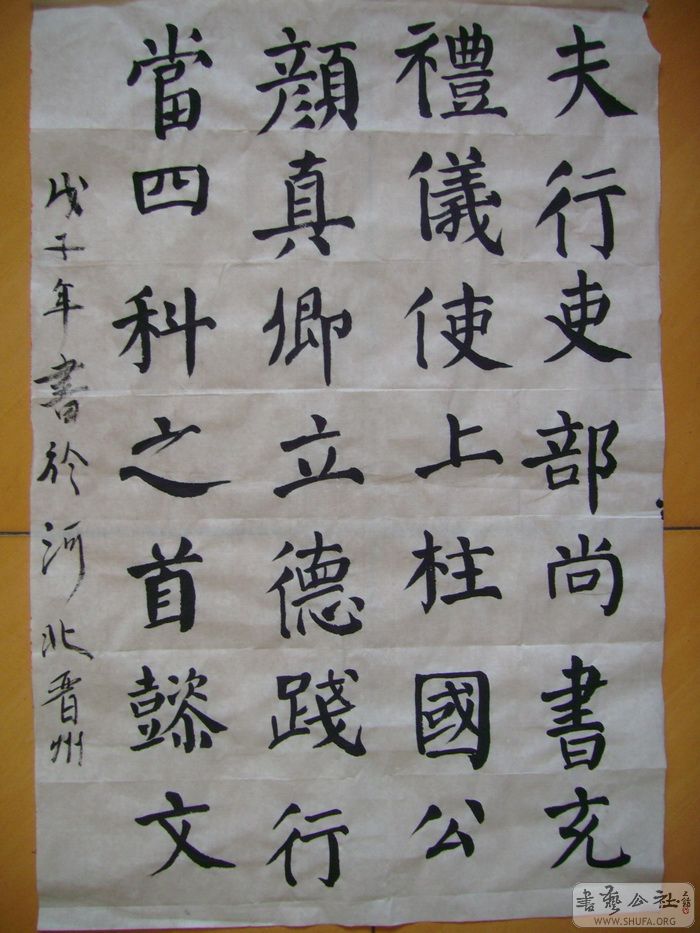 夫行吏部尚書充
禮儀使上柱國公
顔真卿立德踐行
當四科之首懿文
戊子年書於河北晋州
書藝公社
WWW.SHUFA.ORG